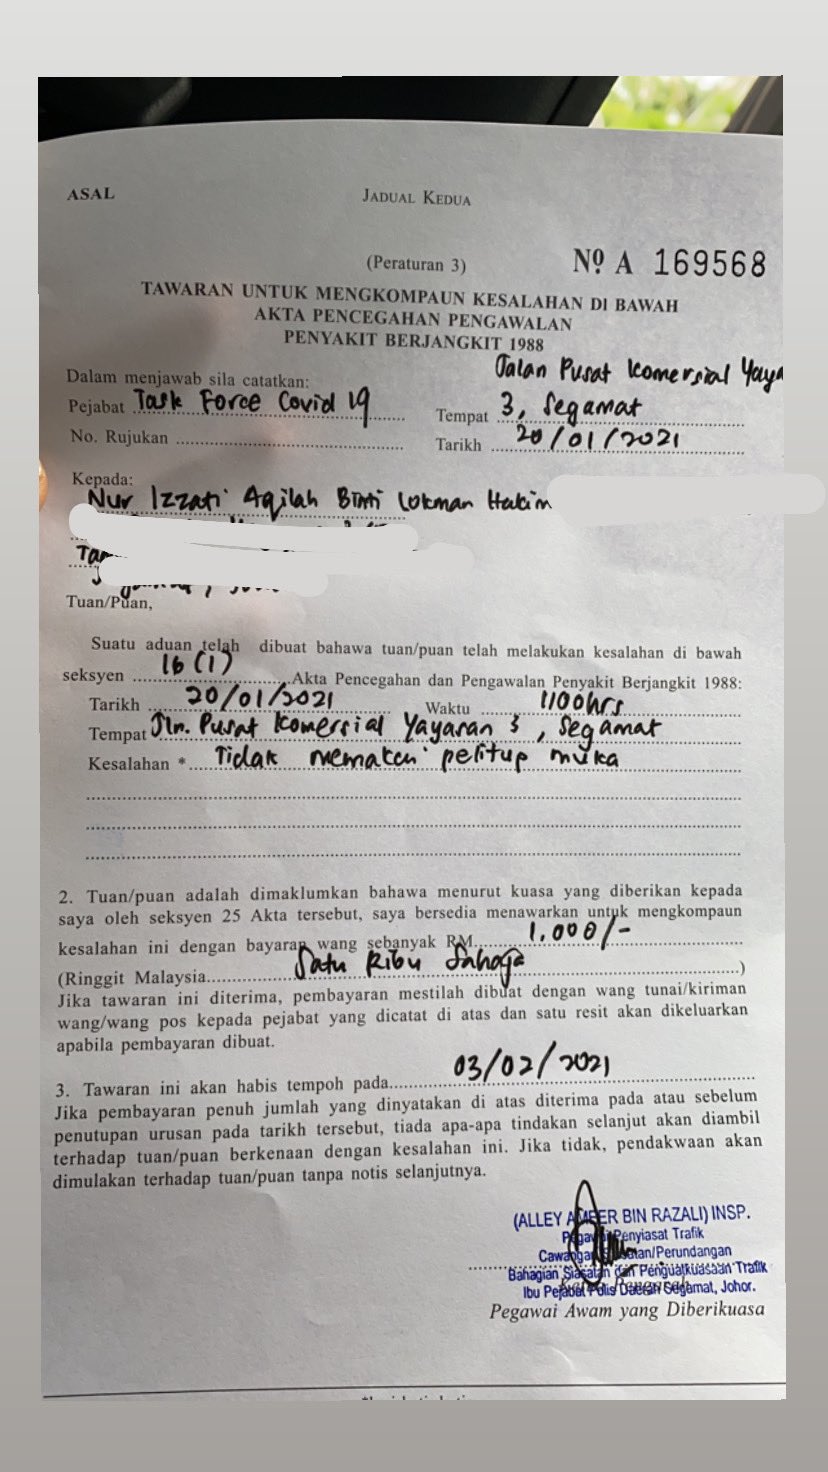 ASAL
JADUAL KEDUA
(Peraturan 3)
Nº A 169568
TAWARAN UNTUK MENGKOMPAUN KESALAHAN DI BAWAH
AKTA PENCEGAHAN PENGAWALAN
PENYAKIT BERJANGKIT 1988
Dalam menjawab sila catatkan:
Jalan Pusat Komersial Yaya
Pejabat Task Force Covid 19
Tempat 3, Segamat
No. Rujukan
Tarikh 20/01/2021
Kepada:
Nur Izzati Aqilah Binti Lokman Hakim
Tuan/Puan,
Suatu aduan telah dibuat bahawa tuan/puan telah melakukan kesalahan di bawah
seksyen 16(1) Akta Pencegahan dan Pengawalan Penyakit Berjangkit 1988:
Tarikh 20/01/2021 Waktu 1100hrs
Tempat Jln. Pusat Komersial Yayasan 3, Segamat
Kesalahan * Tidak memakai pelitup muka
2. Tuan/puan adalah dimaklumkan bahawa menurut kuasa yang diberikan kepada
saya oleh seksyen 25 Akta tersebut, saya bersedia menawarkan untuk mengkompaun
kesalahan ini dengan bayaran wang sebanyak RM 1,000/-
(Ringgit Malaysia Satu Ribu Sahaja)
Jika tawaran ini diterima, pembayaran mestilah dibuat dengan wang tunai/kiriman
wang/wang pos kepada pejabat yang dicatat di atas dan satu resit akan dikeluarkan
apabila pembayaran dibuat.
3. Tawaran ini akan habis tempoh pada 03/02/2021
Jika pembayaran penuh jumlah yang dinyatakan di atas diterima pada atau sebelum
penutupan urusan pada tarikh tersebut, tiada apa-apa tindakan selanjut akan diambil
terhadap tuan/puan berkenaan dengan kesalahan ini. Jika tidak, pendakwaan akan
dimulakan terhadap tuan/puan tanpa notis selanjutnya.
(ALLEY AMEER BIN RAZALI) INSP.
Pegawai Penyiasat Trafik
Cawangan Siasatan/Perundangan
Bahagian Siasatan dan Penguatkuasaan Trafik
Ibu Pejabat Polis Daerah Segamat, Johor.
Pegawai Awam yang Diberikuasa